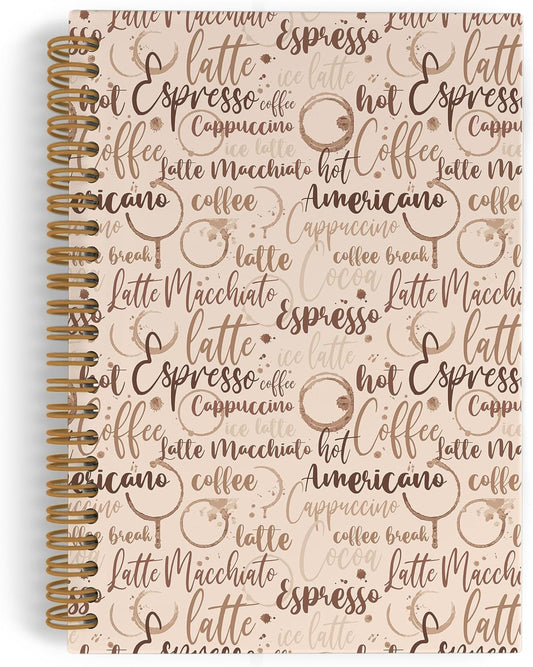 Latte Macchiato Espresso Latte Macchiato
latte ice latte latte
hot Espresso coffee hot Espresso
Cappuccino Cappu
Coffee ice latte Coffee ice
Latte Macchiato hot Latte M
Americano coffee Americano coffee
Cappuccino
coffee break latte coffee break
Cocoa
Latte Macchiato Latte Macch
Espresso
latte ice latte latte
hot Espresso coffee hot Espresso
Cappuccino Cappu
Coffee ice latte Coffee ice
Latte Macchiato hot Latte M
Americano coffee Americano coffee
Cappuccino
coffee break latte coffee break
Cocoa
Latte Macchiato Latte Macch
Espresso
latte ice latte latte
Espresso